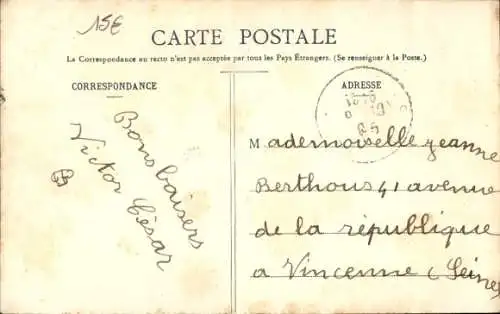 15E
CARTE POSTALE
La Correspondance au recto n'est pas acceptée par tous les Pays Étrangers. (Se renseigner à la Poste.)
CORRESPONDANCE
Bons baisers
Victor César
ADRESSE
Mademoiselle Jeanne
Berthous 41 avenue
de la république
a Vincenne (Seine)